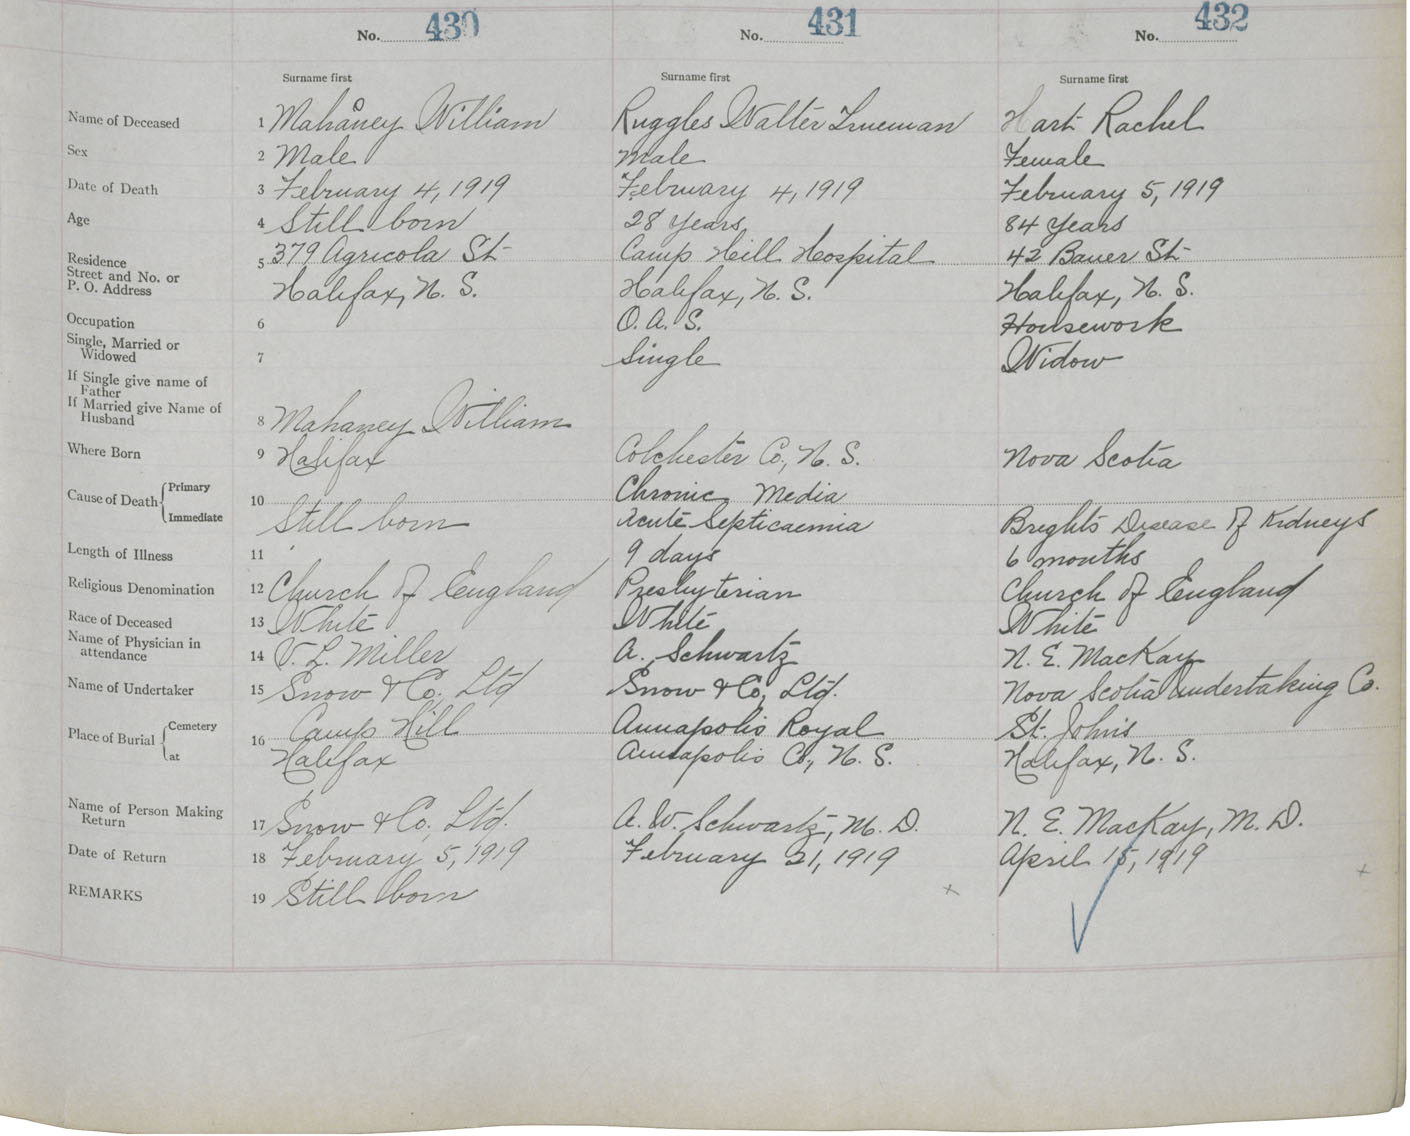 No. 430 No. 431 No. 432
Surname first Surname first Surname first
Name of Deceased 1 Mahaney William Ruggles Walter Trueman Hart Rachel
o
Sex 2 Male Male Female
Date of Death 3 February 4, 1919 February 4, 1919 February 5, 1919
Age 4 Still born 28 Years 84 Years
Residence 5 379 Agricola St Camp Hill Hospital 42 Bauer St
Street and No. or
P. O. Address Halifax, N. S. Halifax, N. S. Halifax, N. S.
Occupation 6 O. A. S. Housework
Single, Married or
Widowed 7 Single Widow
If Single give name of
Father
If Married give Name of
Husband 8 Mahaney William
Where Born 9 Halifax Colchester Co., N. S. Nova Scotia
Cause of Death Primary 10 Chronic Media
Immediate Still born Acute Septicaemia Brights Disease of Kidneys
Length of Illness 11 9 days 6 months
Religious Denomination 12 Church of England Presbyterian Church of England
Race of Deceased 13 White White White
Name of Physician in
attendance 14 V. L. Miller A. Schwartz N. E. MacKay
Name of Undertaker 15 Snow & Co. Ltd Snow & Co, Ltd. Nova Scotia Undertaking Co.
Place of Burial Cemetery 16 Camp Hill Annapolis Royal St. Johns
at Halifax Annapolis Co., N. S. Halifax, N. S.
Name of Person Making
Return 17 Snow & Co. Ltd. A. W. Schwartz, M. D. N. E. MacKay, M. D.
Date of Return 18 February 5, 1919 February 21, 1919 April 15, 1919
REMARKS 19 Still born x x